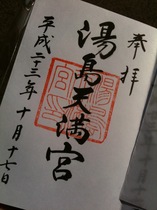 奉拝
湯島天満宮
平成二十三年十月十七日